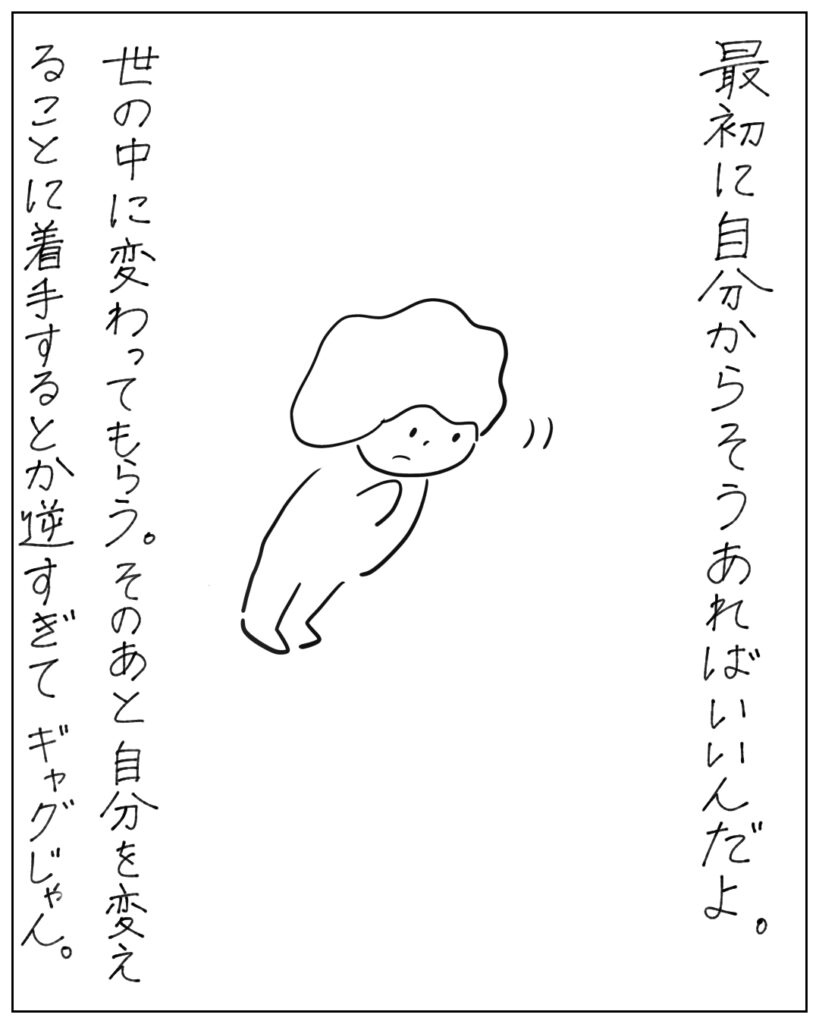 最初に自分からそうあればいいんだよ。
世の中に変わってもらう。そのあと自分を変え
ることに着手するとか逆すぎて ギャグじゃん。